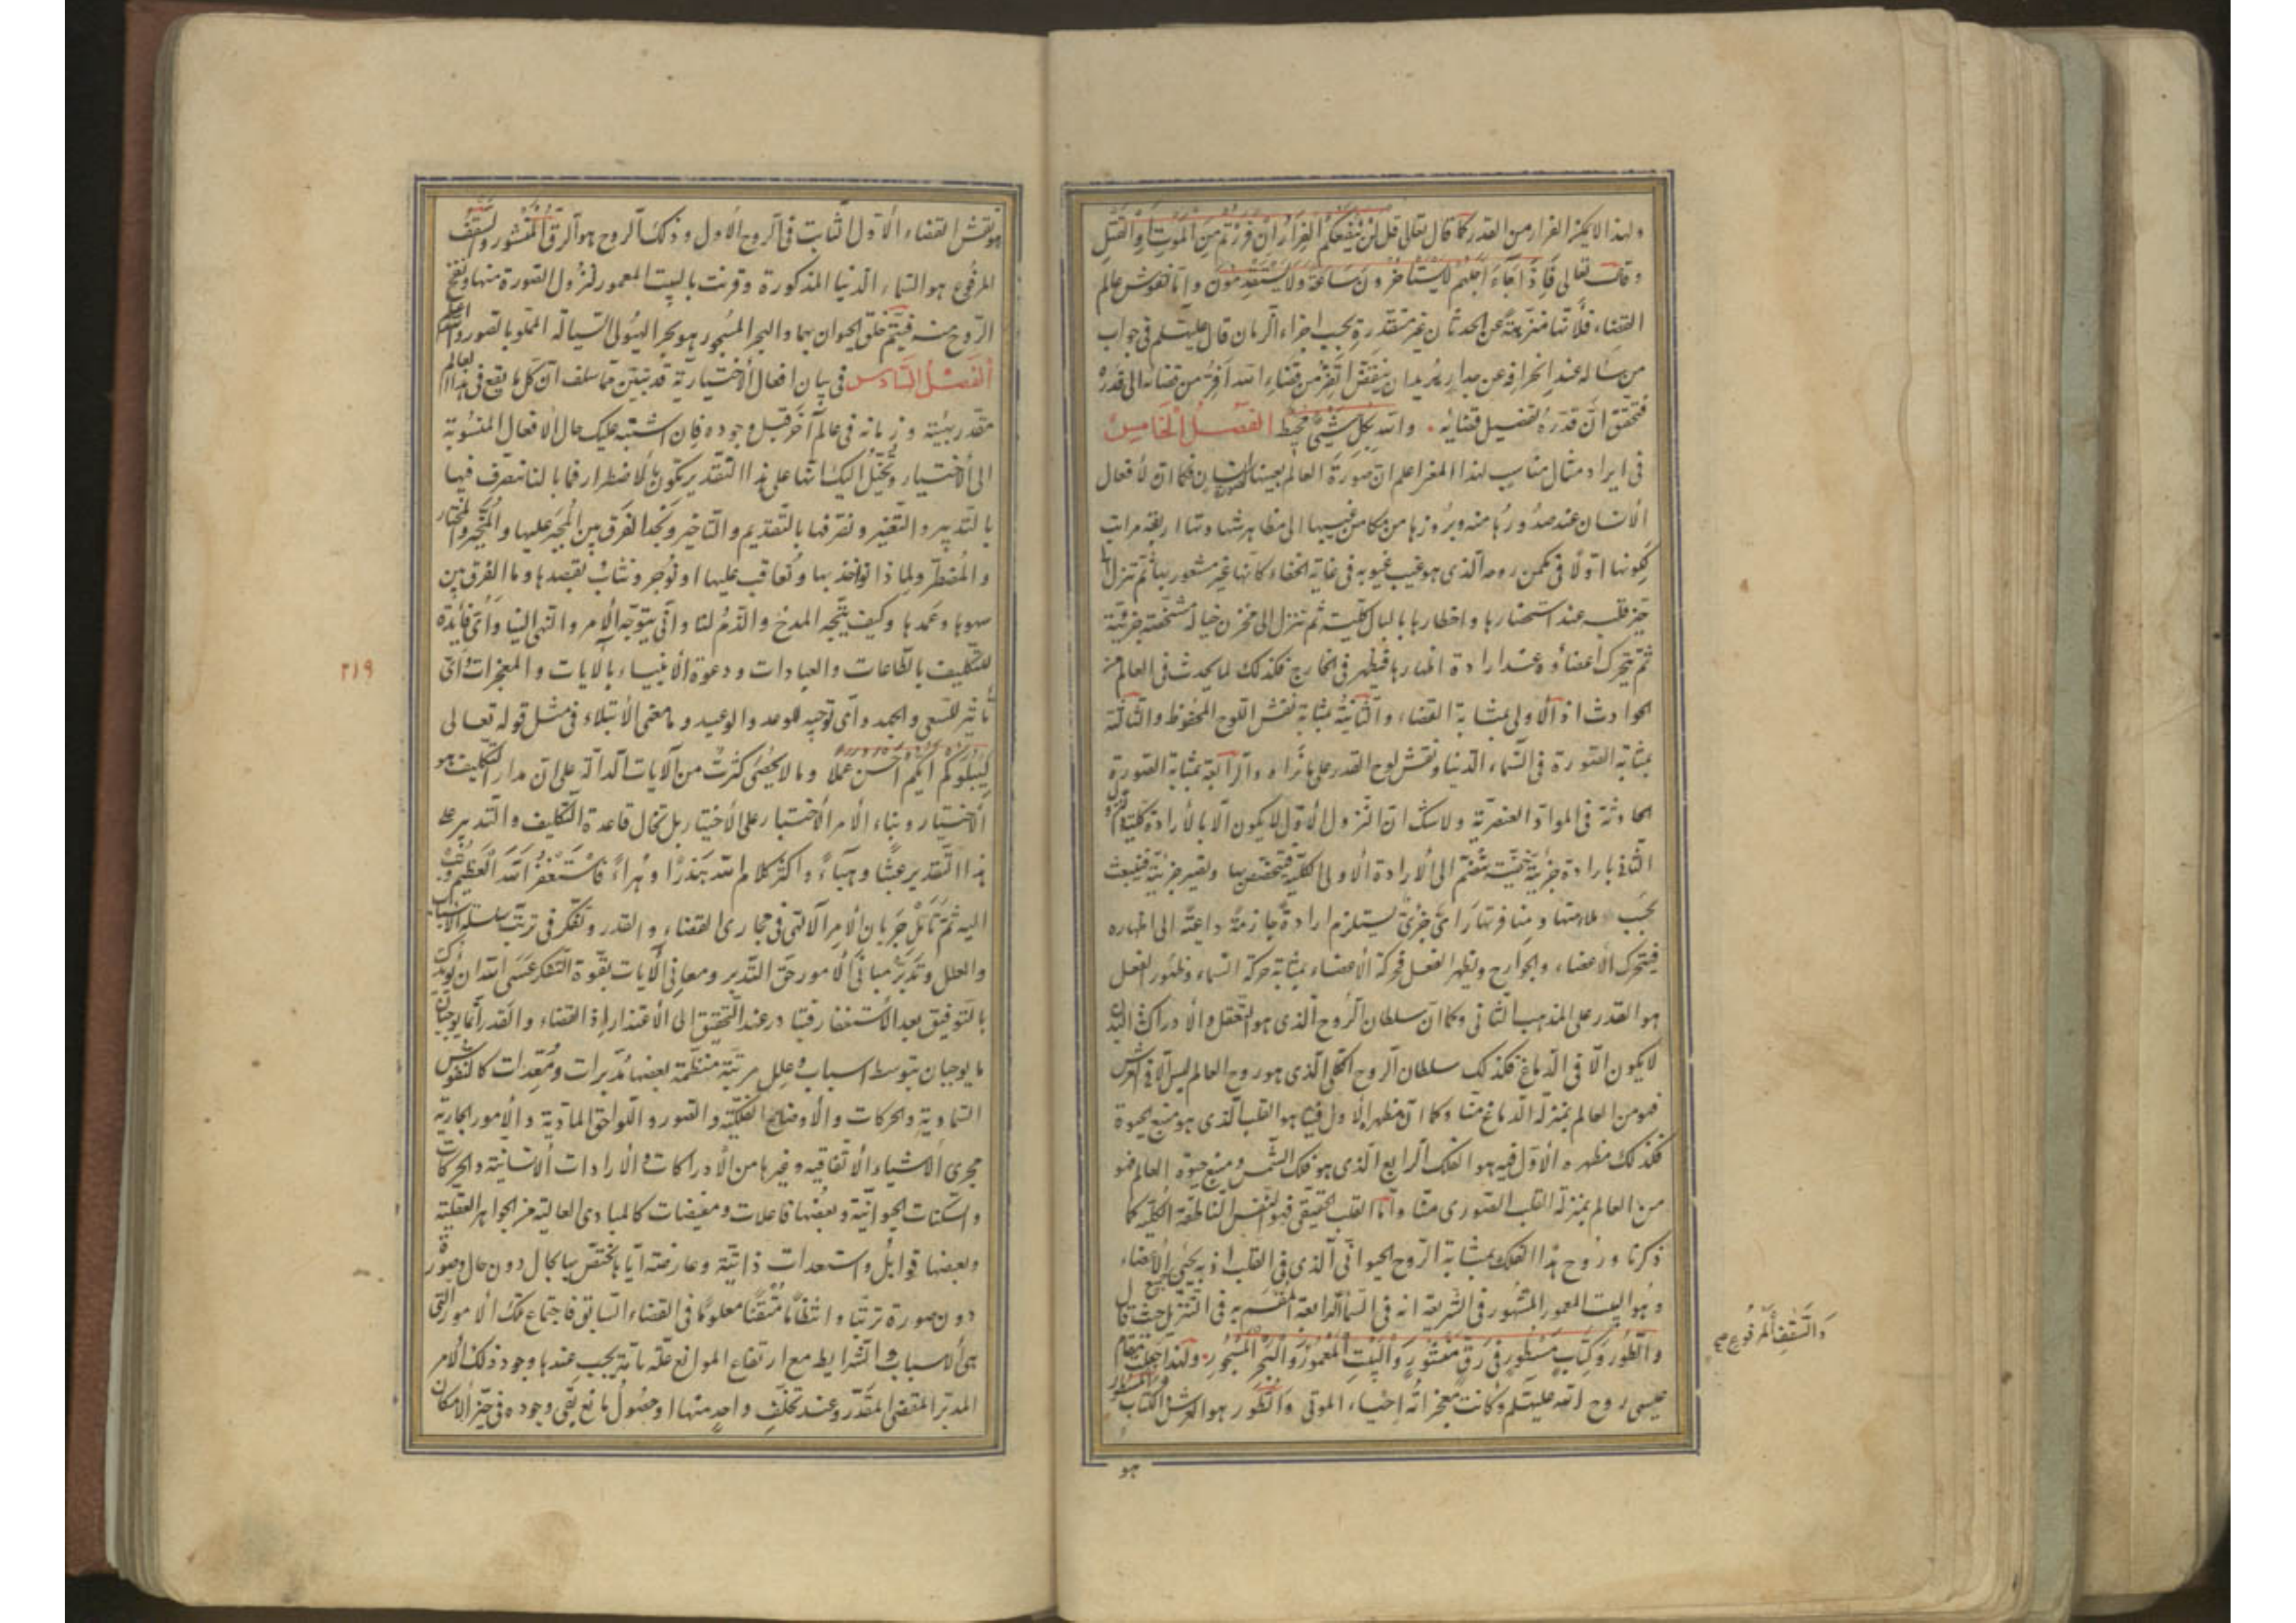 ولهذا لا يمكن الفرار من القدر كما قال تعالى قل لن ينفعكم الفرار ان فررتم من الموت او القتل
وقال تعالى فاذا جاء اجلهم لا يستاخرون ساعة ولا يستقدمون واما نقوش عالم
القضاء فلانها منزهة عن الحدثان غير متقدرة بحسب اجزاء الزمان قال عليه السلم فى جواب
من ساله عند انحرافه عن جدار يريد ان ينقض اتفر من قضاء الله افر من قضائه الى قدره
فتحقق ان قدره تفصيل قضائه والله بكل شيئ محيط الفصل الخامس
فى ايراد مثال مناسب لهذا المغزا اعلم ان صورة العالم بعينها صورة الانسان فكما ان لافعال
الانسان عند صدورها منه وبروزها من مكامن غيبها الى مظاهر شهادتها اربعة مراتب
لكونها اولا فى مكمن روحه الذى هو غيب غيوبه فى غاية الخفاء كانها غير مشعور بها ثم تنزل الى
حيز قلبه عند استحضارها واخطارها بالبال كلية ثم تنزل الى مخزن خياله مشخصة جزئية
ثم يتحرك اعضاؤه عند ارادة اظهارها فيظهر فى الخارج فكذلك لما يحدث فى العالم من
الحوادث اذ الاولى بمثابة القضاء والثانية بمثابة نقش اللوح المحفوظ والثالثة
بمثابة الصورة فى السماء الدنيا ونقش لوح القدر على ما نراه والرابعة بمثابة الصورة
الحادثة فى المواد العنصرية ولا شك ان النزول الاول لا يكون الا بالارادة كلية والنزول
الثانى بارادة جزئية خفية تنضم الى الارادة الاولى الكلية فيتخصص بها ويصير جزئية فينبعث
بحسب ملاءمتها ومنافرتها راى جزئى يستلزم ارادة جازمة داعية الى اظهاره
فيتحرك الاعضاء والجوارح ويظهر الفعل فحركة الاعضاء بمثابة حركة السماء وظهور الفعل
هو القدر على المذهب الثانى وكما ان سلطان الروح الذى هو التعقل والادراك الذى
لا يكون الا فى الدماغ فكذلك سلطان الروح الكلى الذى هو روح العالم ليس الا فى العرش
فهو من العالم بمنزلة الدماغ منا وكما ان مظهره الاول فينا هو القلب الذى هو منبع الحيوة
فكذلك مظهره الاول فيه هو الفلك الرابع الذى هو فلك الشمس ومنبع حيوة العالم فهو
من العالم بمنزلة القلب الصنوبرى منا واما القلب الحقيقى فهو النفس الناطقة الكلية كما
ذكرنا وروح هذا الفلك بمثابة الروح الحيوانى الذى فى القلب اذ به يحيى جميع الاعضاء
وهو البيت المعمور المشهور فى الشريعة انه فى السماء الرابعة المقسم به فى التنزيل حيث قال
والطور وكتاب مسطور فى رق منشور والبيت المعمور والبحر المسجور ولهذا جعلت مقام
والسقف المرفوع صح
عيسى روح الله عليه السلم وكانت معجزاته احياء الموتى والطور هو العرش والكتاب المسطور
هو
هو نقش القضاء الاول الثابت فى الروح الاول وذلك الروح هو الرق المنشور والسقف
المرفوع هو السماء الدنيا المذكورة وقرنت بالبيت المعمور لنزول الصورة منها ونفخ
الروح منه فيتم خلق الحيوان بهما والبحر المسجور هو بحر الهيولى السيالة المملو بالصور والله اعلم
الفصل السادس فى بيان افعال الاختيارية قد تبين مما سلف ان كل ما يقع فى هذا العالم
مقدر بهيئته وزمانه فى عالم آخر قبل وجوده فان اشتبه عليك حال الافعال المنسوبة
الى الاختيار وتخيل اليك انها على هذا التقدير يكون بالاضطرار فما بالنا نتصرف فيها
بالتدبير والتغيير ونفرقها بالتقديم والتاخير ونجد الفرق بين المجبر عليها والمخير والمختار
والمضطر ولماذا نواخذ بها ونعاقب عليها او نوجر ونثاب بقصدها وما الفرق بين
سهوها وعمدها وكيف يتجه المدح والذم لنا وانى يتوجه الامر والنهى الينا واى فايدة
للتكليف بالطاعات والعبادات ودعوة الانبياء بالايات والمعجزات واى
٢١٩
تاثير للسعى والجهد واى توجيه للوعد والوعيد وما معنى الابتلاء فى مثل قوله تعالى
ليبلوكم ايكم احسن عملا وما لا يحصى كثرت من الآيات الدالة على ان مدار التكليف هو
الاختيار وبناء الامر الاختبار على الاختيار بل تخال قاعدة التكليف والتدبير على
هذا التقدير عبثا وهباء واكثر كلام الله هذرا وهراء فاستغفر الله العظيم وتب
اليه ثم تامل جريان الامر الالهى فى مجارى القضاء والقدر وتفكر فى ترتب سلسلة الاسباب
والعلل وتدبر مبانى الامور حق التدبر ومعانى الآيات بقوة التفكر عسى الله ان يؤيدك
بالتوفيق بعد الاستغفار فتبادر عند التحقيق الى الاعتذار اذ القضاء والقدر انما يوجبان
ما يوجبان بتوسط اسباب وعلل مرتبة منتظمة بعضها مدبرات ومعدات كالنفوس
السماوية والحركات والاوضاع الفلكية والصور واللواحق المادية والامور الجارية
مجرى الاشياء الاتفاقيه وغيرها من الادراكات والارادات الانسانية والحركات
والسكنات الحيوانية وبعضها فاعلات ومفيضات كالمبادى العالية من الجواهر العقلية
وبعضها قوابل واستعدادات ذاتية وعارضة انما يختص بها بحال دون حال وصورة
دون صورة ترتبا وانتظاما متقنا معلوما فى القضاء السابق فاجتماع تلك الامور التى
هى الاسباب والشرايط مع ارتفاع الموانع علة تامة يجب عندها وجود ذلك الامر
المدبر المقضى المقدر وعند تخلف واحد منها او حصول مانع بقى وجوده فى حيز الامكان